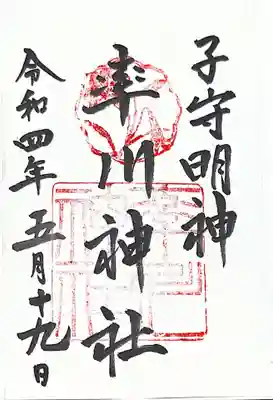 子守明神
率川神社
令和四年 五月十九日